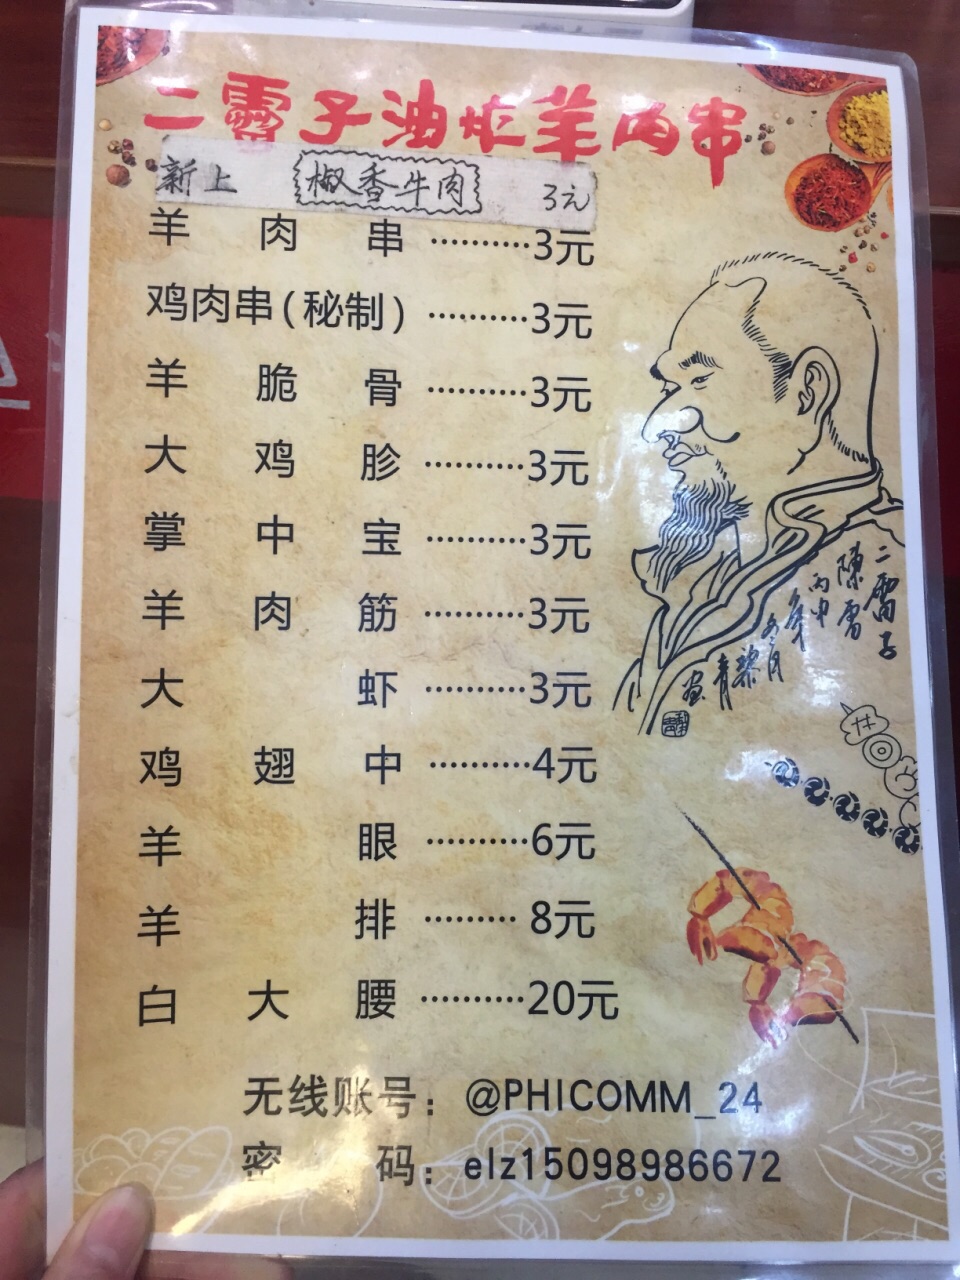 二雷子油炸羊肉串
新上 椒香牛肉 3元
羊肉串··········3元
鸡肉串(秘制)··········3元
羊脆骨··········3元
大鸡胗··········3元
掌中宝··········3元
羊肉筋··········3元
大虾··········3元
鸡翅中··········4元
羊眼··········6元
羊排·········8元
白大腰··········20元
无线账号：@PHICOMM_24
密码：elz15098986672
二雷子
陳雷
丙申